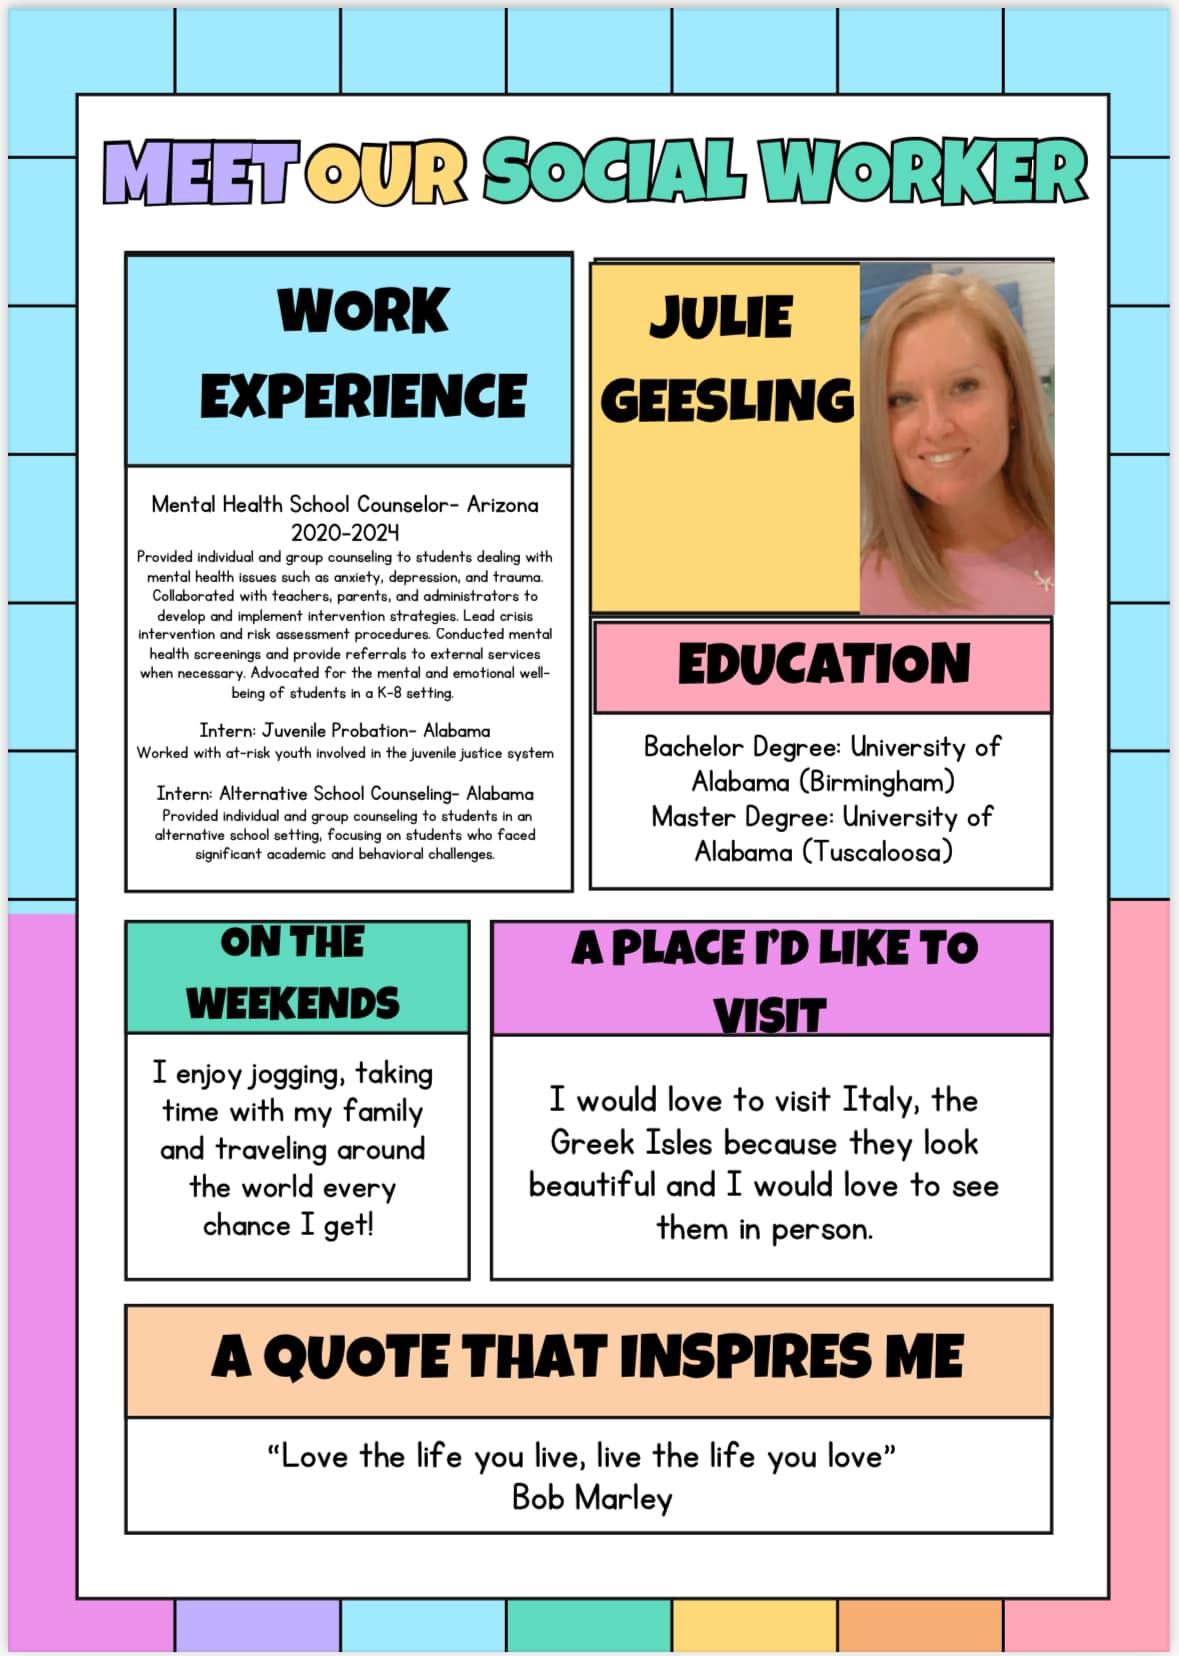 MEET OUR SOCIAL WORKER
WORK
EXPERIENCE
Mental Health School Counselor- Arizona
2020-2024
Provided individual and group counseling to students dealing with
mental health issues such as anxiety, depression, and trauma.
Collaborated with teachers, parents, and administrators to
develop and implement intervention strategies. Lead crisis
intervention and risk assessment procedures. Conducted mental
health screenings and provide referrals to external services
when necessary. Advocated for the mental and emotional well-
being of students in a K-8 setting.
Intern: Juvenile Probation- Alabama
Worked with at-risk youth involved in the juvenile justice system
Intern: Alternative School Counseling- Alabama
Provided individual and group counseling to students in an
alternative school setting, focusing on students who faced
significant academic and behavioral challenges.
JULIE
GEESLING
EDUCATION
Bachelor Degree: University of
Alabama (Birmingham)
Master Degree: University of
Alabama (Tuscaloosa)
ON THE
WEEKENDS
I enjoy jogging, taking
time with my family
and traveling around
the world every
chance I get!
A PLACE I'D LIKE TO
VISIT
I would love to visit Italy, the
Greek Isles because they look
beautiful and I would love to see
them in person.
A QUOTE THAT INSPIRES ME
“Love the life you live, live the life you love”
Bob Marley